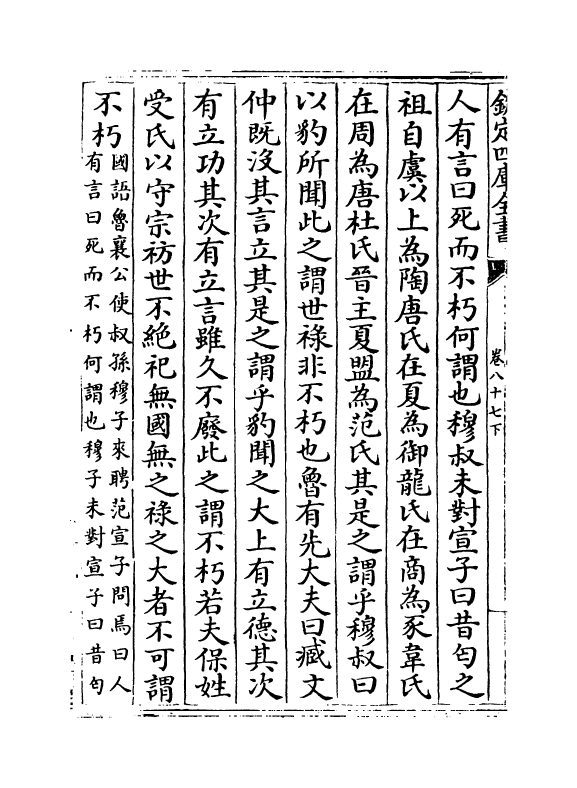 欽定四庫全書
卷八十七下
人有言曰死而不朽何謂也穆叔未對宣子曰昔匄之
祖自虞以上為陶唐氏在夏為御龍氏在商為豕韋氏
在周為唐杜氏晉主夏盟為范氏其是之謂乎穆叔曰
以豹所聞此之謂世祿非不朽也魯有先大夫曰臧文
仲既没其言立其是之謂乎豹聞之大上有立德其次
有立功其次有立言雖久不廢此之謂不朽若夫保姓
受氏以守宗祊世不絕祀無國無之祿之大者不可謂
不朽國語魯襄公使叔孫穆子來聘范宣子問焉曰人
有言曰死而不朽何謂也穆子未對宣子曰昔匄